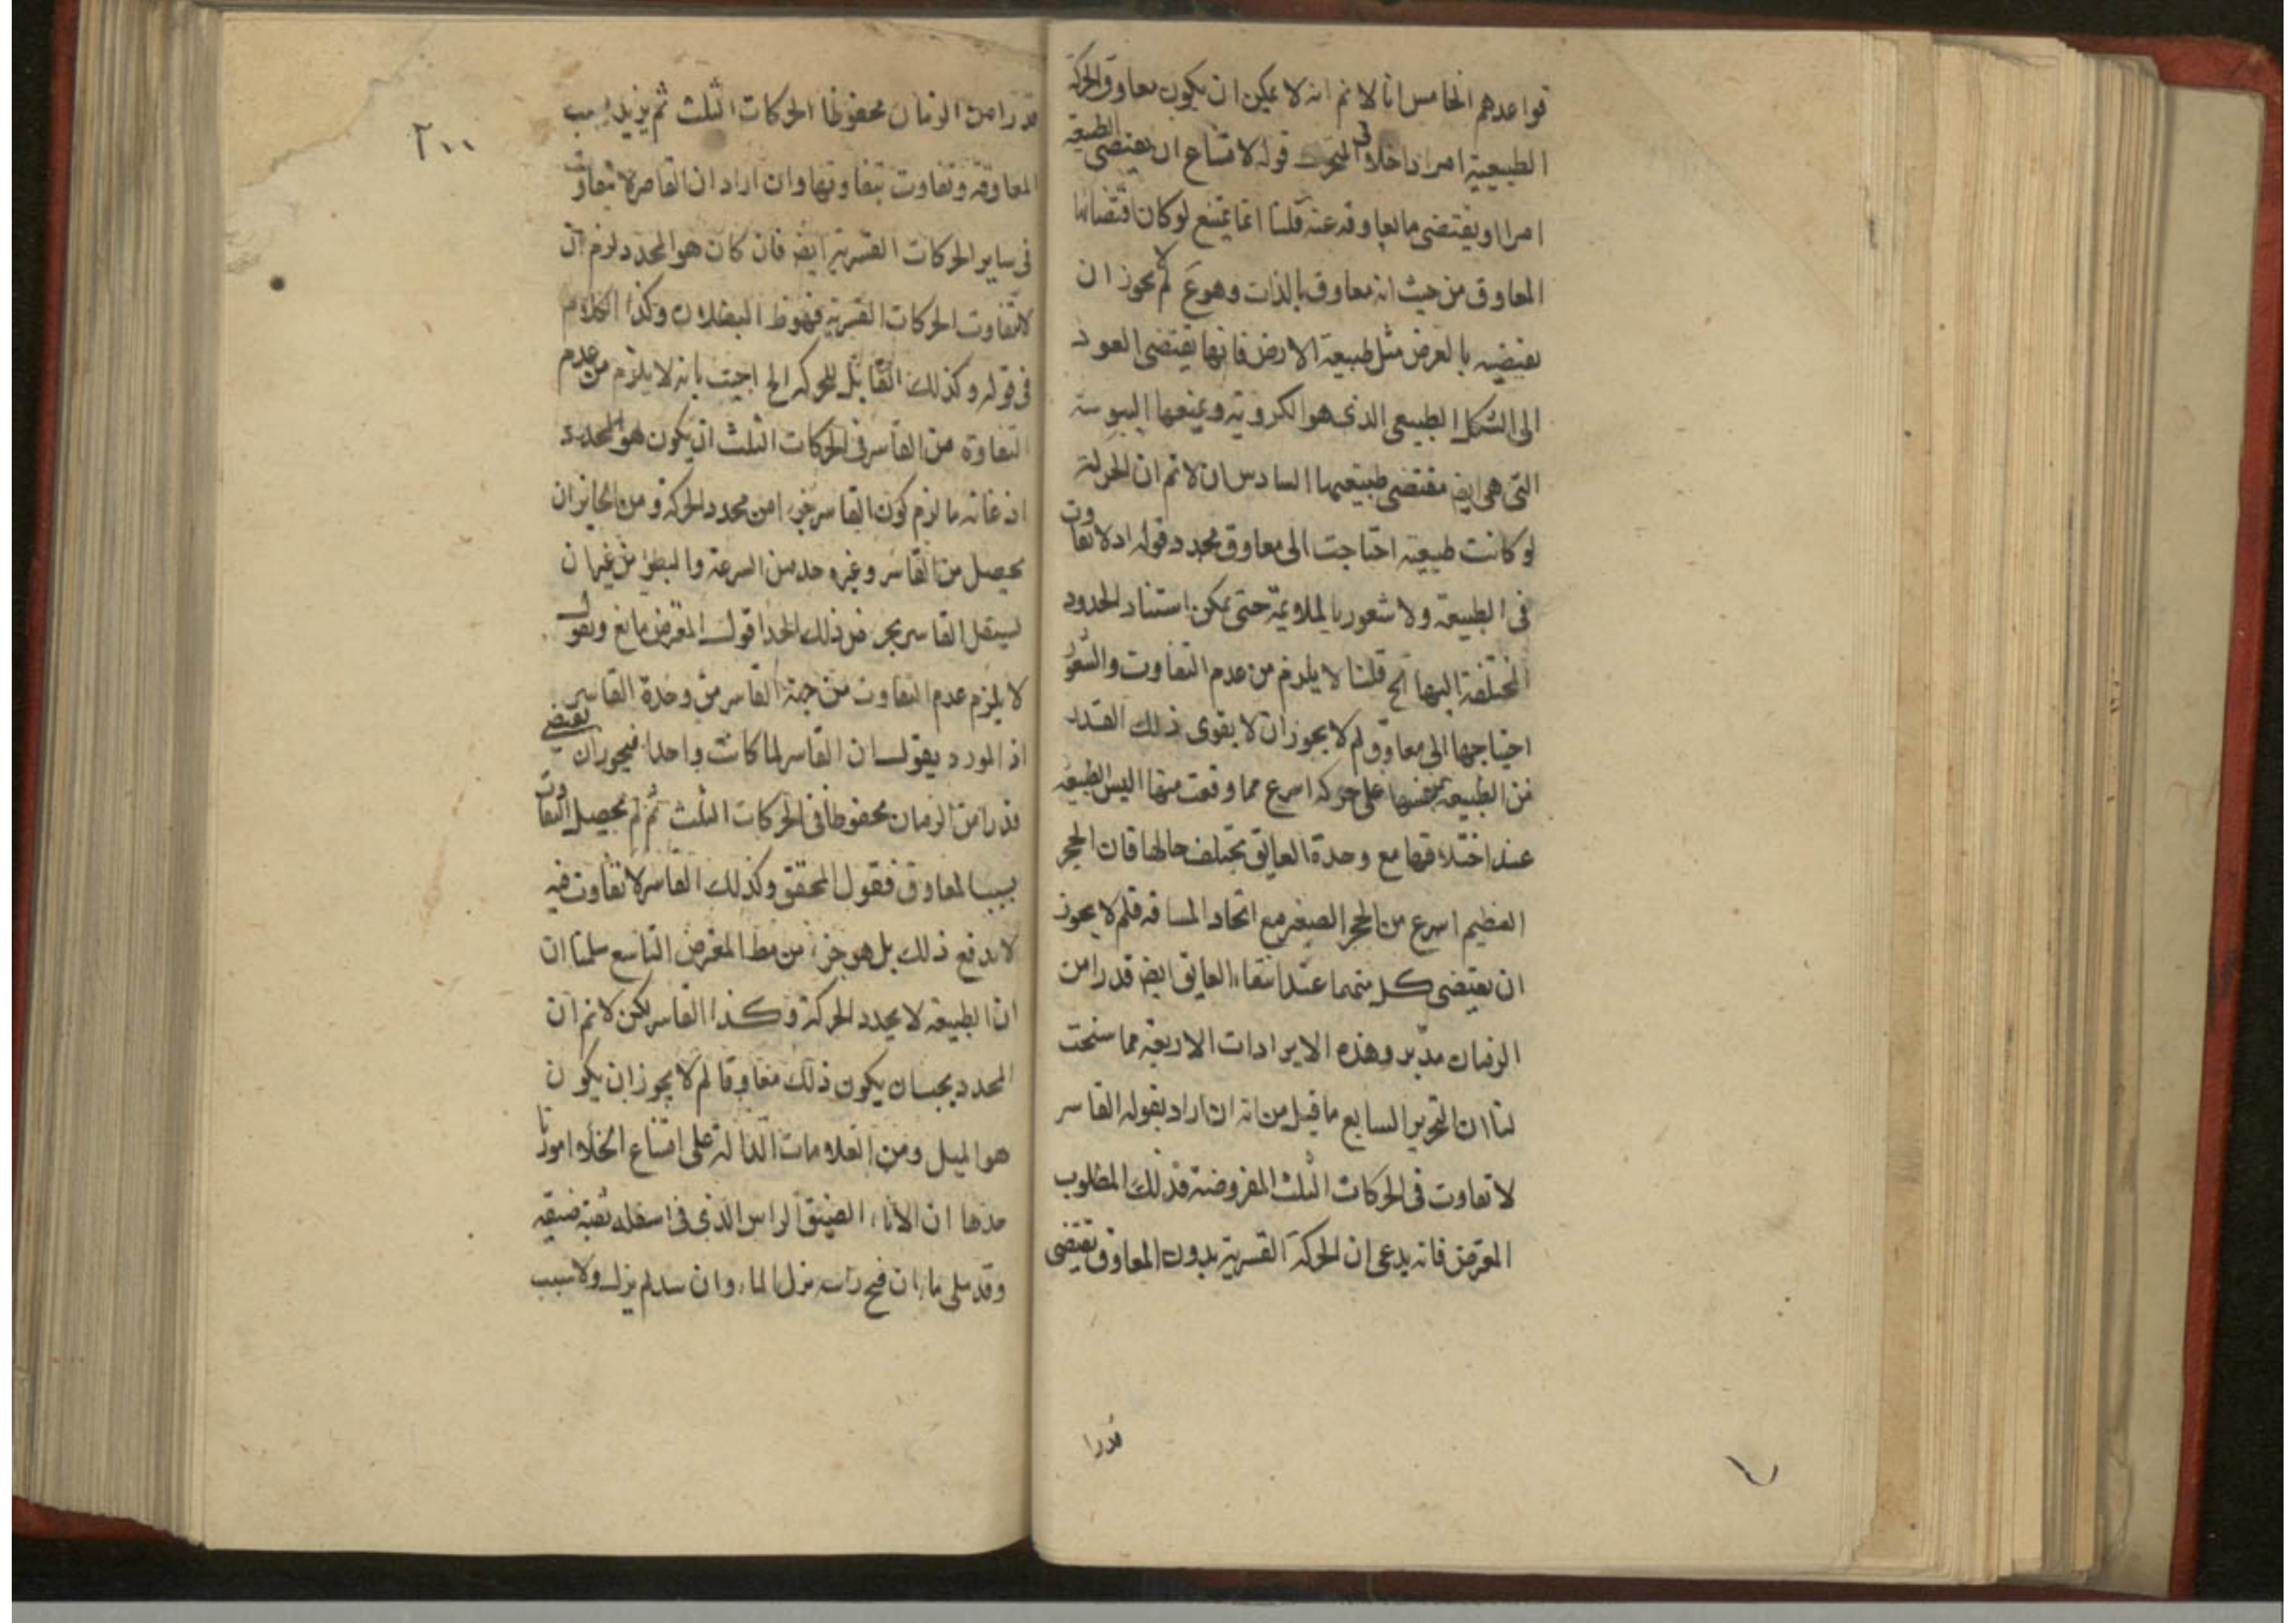 قواعدهم الخامس انا لانم انه لا يمكن ان يكون معاوق الحركة
الطبيعية امرا داخلا في المتحرك قوله لامتناع ان يقتضى الطبيعة
امرا او يقتضى ما يعاوقه عنه قلنا انما يمتنع لو كان اقتضائها
المعاوق من حيث انه معاوق بالذات وهو ع لم لا يجوز ان
يقتضيه بالعرض مثل طبيعة الارض فانها يقتضى العود
الى الشكل الطبيعى الذى هو الكروية ويمنعها اليبوسة
التى هى ايض مقتضى طبيعتها السادس ان لا نم ان الحركة
لو كانت طبيعية احتاجت الى معاوق محدد قوله اذ لا تفاوت
فى الطبيعة ولا شعور بالملايمة حتى يمكن استناد الحدود
المختلفة اليها الخ قلنا لا يلزم من عدم التفاوت والشعور
احتياجها الى معاوق لم لا يجوز ان لا يقوى ذلك القدر
من الطبيعة بنفسها على حركة اسرع مما وقعت منها اليس الطبيعة
عند اختلافها مع وحدة العايق يختلف حالها فان الحجر
العظيم اسرع من الحجر الصغير مع اتحاد المسافة فلم لا يجوز
ان يقتضى كل منهما عند انتفاء العايق ايض قدرا من
الزمان مدبر وهذه الايرادات الاربعة مما سنحت
لنا ان التحرير السابع ما قيل من انه ان اراد بقوله القاسر
لا تفاوت فى الحركات الثلث المفروضة فذلك المطلوب
المعترض فانه يدعى ان الحركة القسرية بدون المعاوق تقتضى
قدرا
٢٠٠
قدرا من الزمان محفوظا الحركات الثلث ثم يزيد بسبب
المعاوقة وتفاوت بتفاوتها وان اراد ان القاصر لا تفاوت
فى ساير الحركات القسرية ايض فان كان هو المحدد لزم ان
لا تتفاوت الحركات القسرية فهو ظ البطلان وكذا الكلام
فى قوله وكذلك القابل للحركة الخ اجيب بانه لا يلزم من عدم
التفاوة من القاسر فى الحركات الثلث ان يكون هو المحدد
اذ غاته ما لزم كون القاسر جزءا من محدد الحركة ومن الجايز ان
يحصل من القاسر وغيره حد من السرعة والبطؤ من غير ان
يستقل القاسر بجر ذلك الحد اقول المعترض مانع ويقول
لا يلزم عدم التفاوت من جهة القاسر من وحدة القاسر
اذ المورد يقول ان القاسر لما كانت واحدا فيجوز ان يقتضى
قدرا من الزمان محفوظا فى الحركات الثلث ثم لم يحصل التفاوت
بسبب المعاوق فقول المحقق وكذلك القاسر لا تفاوت فيه
لا يدفع ذلك بل هو جزء من مط المعترض التاسع سلمنا ان
ان الطبيعة لا يحدد الحركة وكذا القاسر لكن لا نم ان
المحدد يجب ان يكون ذلك معاوقا لم لا يجوز ان يكون
هو الميل ومن العلامات الدالة على امتناع الخلاء امورا
منها ان الاناء الضيق الراس الذى فى اسفله ثقبة ضيقة
وقد ملى ماء ان فتح راسه نزل الماء وان سد لم ينزل ولا سبب